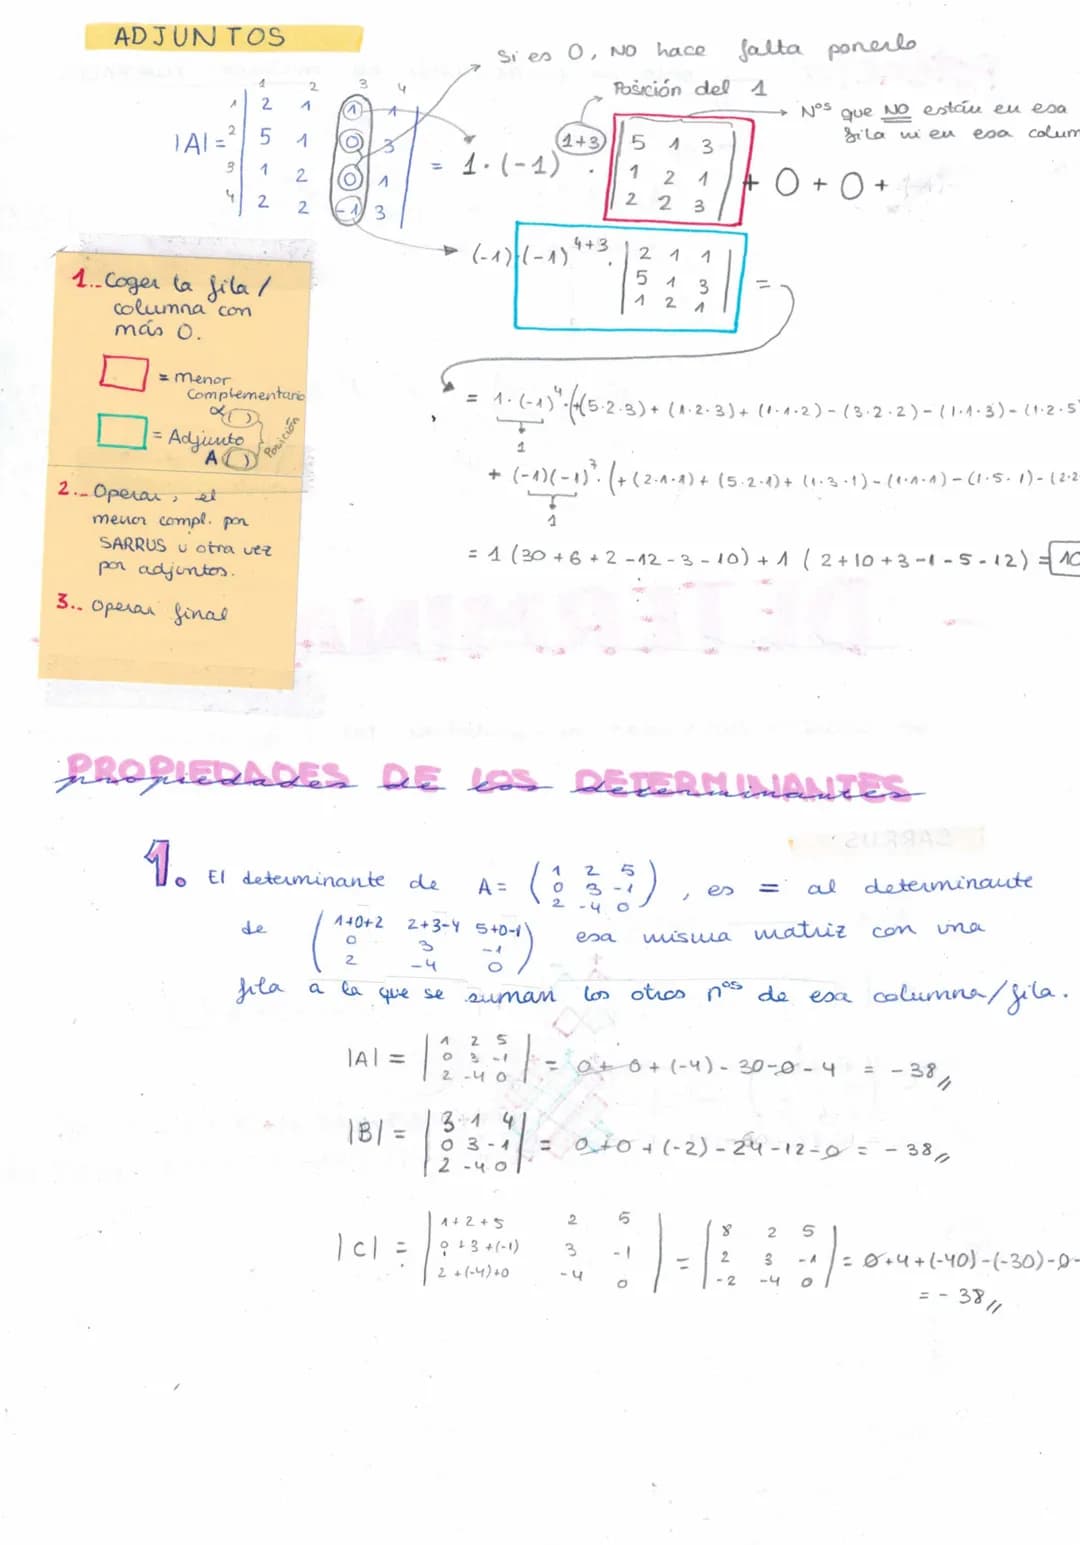 ADJUNTOS
Si es 0, NO hace falta ponerlo
Posición del 1
Nºs que NO están en esa
fila ni en esa colum
1 2 3 4
1 2 1 1 1
|A| = 2 5 1 0 3
3 1 2 0 1
4 2 2 -1 3
= 1·(-1)^(1+3) · | 5 1 3 | + 0 + 0 +
| 1 2 1 |
| 2 2 3 |
(-1)·(-1)^(4+3) · | 2 1 1 | =
| 5 1 3 |
| 1 2 1 |
1.- Coger la fila /
columna con
más 0.
= menor
complementario
α( )
= Adjunto
A( )
Posición
2.- Operar, el
menor compl. por
SARRUS u otra vez
por adjuntos.
3.- Operar final
= 1·(-1)^4·(+(5·2·3)+(1·2·3)+(1·1·2)-(3·2·2)-(1·1·3)-(1·2·5
1
+ (-1)(-1)^7·(+(2·1·1)+(5·2·1)+(1·3·1)-(1·1·1)-(1·5·1)-(2·2
1
= 1 (30+6+2-12-3-10)+1 (2+10+3-1-5-12) = 10
PROPIEDADES DE LOS DETERMINANTES
propiedades de los determinantes
1. El determinante de A = ( 1 2 5 ), es = al determinante
( 0 3 -1 )
( 2 -4 0 )
de ( 1+0+2 2+3-4 5+0-1 ) esa misma matriz con una
( 0 3 -1 )
( 2 -4 0 )
fila a la que se suman los otros nºs de esa columna/fila.
|A| = | 1 2 5 | = 0+0+(-4)-30-0-4 = -38,,
| 0 3 -1 |
| 2 -4 0 |
|B| = | 3 1 4 | = 0+0+(-2)-24-12-0 = -38,,
| 0 3 -1 |
| 2 -4 0 |
|C| = | 1+2+5 2 5 | = | 8 2 5 | = 0+4+(-40)-(-30)-0-
| 0+3+(-1) 3 -1 | | 2 3 -1 |
| 2+(-4)+0 -4 0 | | -2 -4 0 |
= -38,,